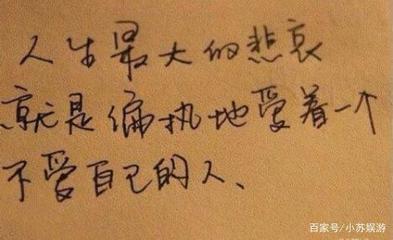 人生最大的悲哀
就是偏执地爱着一个
不爱自己的人、
百家号/小苏娱游